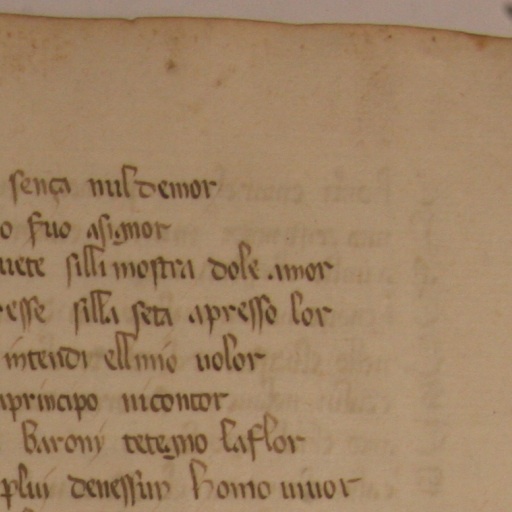 sença nul demor
o suo asignor
uete silli mostra dole amor
esse silla seta apresso lor
intendi ell mio uolor
principo ni contor
baroni tetegno la flor
plui denessun homo uiuor